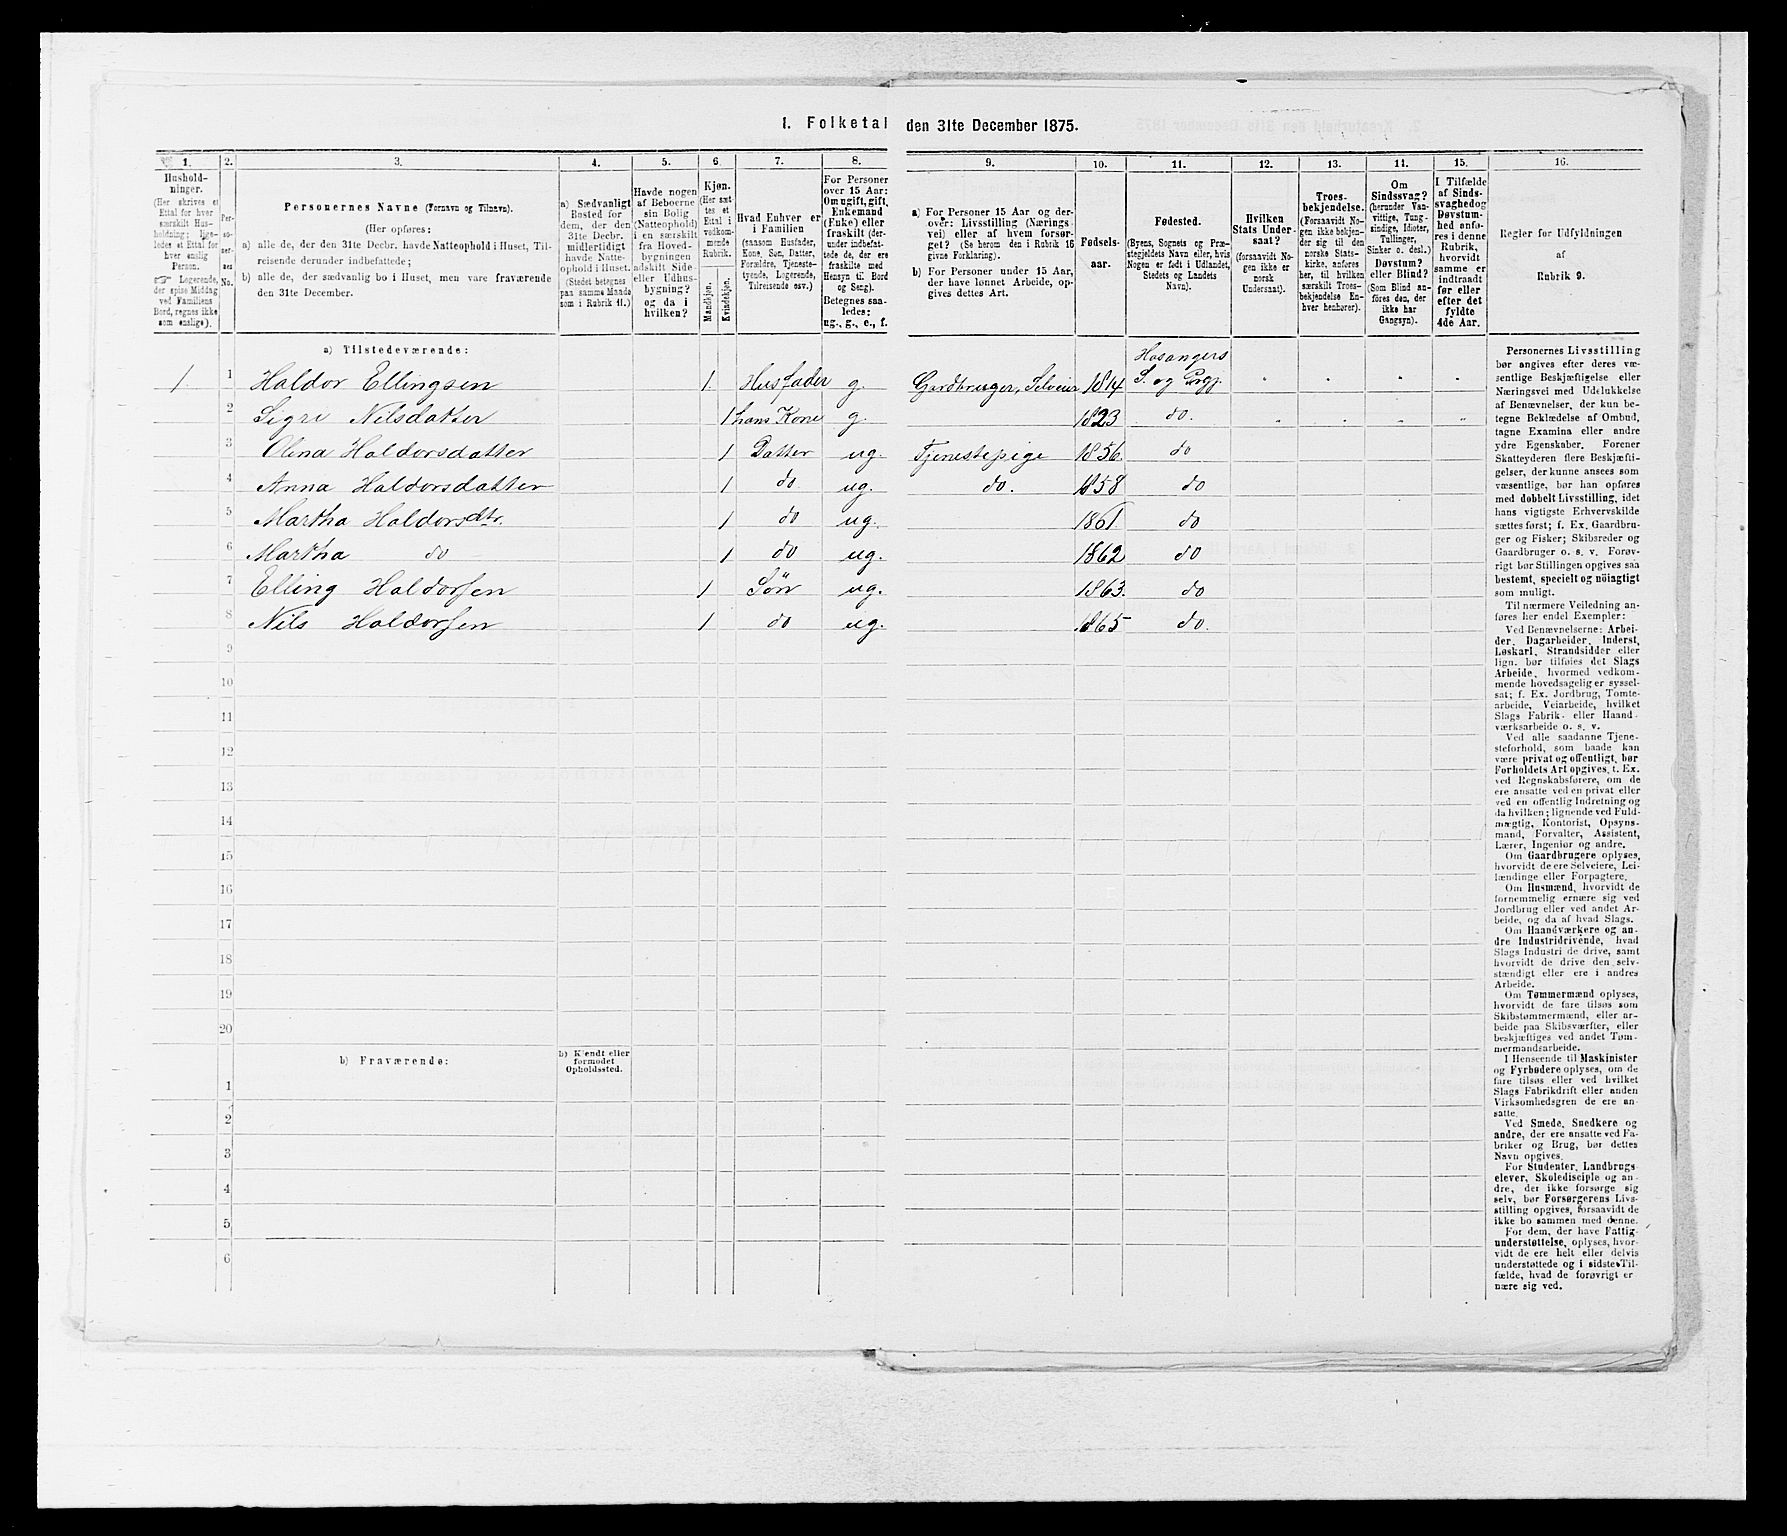 1. Folketal den 31te December 1875.
1. 2. 3. 4. 5. 6. 7. 8. 9. 10. 11. 12. 13. 14. 15. 16.
Hushold-
ninger.
(Her skrives et
Ettal for hver
særskilt Hus-
holdning; lige-
ledes et Ettal for
hver enslig
Person.
☞ Logerende,
der spise Middag
ved Familiens
Bord, regnes ikke
som enslige).
Per-
so-
ner-
nes
No.
Personernes Navne (Fornavn og Tilnavn).
(Her opføres:
a) alle de, der den 31te Decbr. havde Natteophold i Huset, Til-
reisende derunder indbefattede;
b) alle de, der sædvanlig bo i Huset, men vare fraværende
den 31te December.
a) Sædvanligt
Bosted for
dem, der den
31te Decbr.
midlertidigt
havde Natte-
ophold i Huset.
(Stedet betegnes
paa samme Maade
som i Rubrik 11.)
Havde nogen
af Beboerne
sin Bolig
(Natteophold)
i en særskilt
fra Hoved-
bygningen
adskilt Side-
eller Udhus-
bygning?
og da i
hvilken?
Kjøn.
(Her sæt-
tes et
Ettal i
vedkom-
mende
Rubrik.
Mandkjøn.
Kvindekjøn.
Hvad Enhver er
i Familien
(saasom Husfader,
Kone, Søn, Datter,
Forældre, Tjeneste-
tyende, Logerende,
Tilreisende osv.)
For Personer
over 15 Aar:
Om ugift, gift,
Enkemand
(Enke) eller
fraskilt (der-
under indbefat-
tede de, der ere
fraskilte med
Hensyn til Bord
og Seng).
Betegnes saa-
ledes:
ug., g., e., f.
a) For Personer 15 Aar og der-
over: Livsstilling (Nærings-
vei) eller af hvem forsør-
get? (Se herom den i Rubrik 16
givne Forklaring).
b) For Personer under 15 Aar,
der have lønnet Arbeide, op-
gives dettes Art.
Fødsels-
aar.
Fødested.
(Byens, Sognets og Præ-
stegjeldets Navn eller, hvis
Nogen er født i Udlandet,
Stedets og Landets
Navn).
Hvilken
Stats Under-
saat?
(forsaavidt No-
gen ikke er
norsk
Undersaat).
Troes-
bekjendelse.
(Forsaavidt No-
gen ikke bekjen-
der sig til den
norske Stats-
kirke, anføres
her, til hvilken
særskilt Troes-
bekjendelse En-
hver henhører).
Om
Sindssvag?
(herunder Van-
vittige, Tung-
sindige, Idioter,
Tullinger,
Sinker o. desl.)
Døvstum?
eller Blind?
(Som Blind an-
føres den, der
ikke har
Gangsyn).
I Tilfælde
af Sinds-
svaghed og
Døvstum-
hed anfø-
res i denne
Rubrik,
hvorvidt
samme er
indtraadt
før eller
efter det
fyldte
4de Aar.
Regler for Udfyldningen
af
Rubrik 9.
a) Tilstedeværende:
1 1 Haldor Ellingsen 1 Husfader g. Gardbruger, Selveier 1814 Hosangers S. og Prgj. " " " "
2 Sigri Nilsdatter 1 hans Kone g. 1823 do. " " " "
3 Olina Haldorsdatter 1 Datter ug. Tjenestepige 1856. do
4 Anna Haldorsdatter 1 do ug. do. 1858 do
5 Martha Haldorsdtr. 1 do ug. 1861 do
6 Martha do 1 do ug. 1862 do
7 Elling Haldorsen 1 Søn ug. 1863. do
8 Nils Haldorsen 1 do ug. 1865 do.
9
10
11
12
13
14
15
16
17
18
19
20
b) Fraværende:
b) Kjendt eller
formodet
Opholdssted.
1
2
3
4
5
6
Personernes Livsstilling
bør angives efter deres væ-
sentlige Beskjæftigelse eller
Næringsvei med Udelukkelse
af Benævnelser, der kun be-
tegne Beklædelse af Ombud,
tagne Examina eller andre
ydre Egenskaber. Forener
Skatteyderen flere Beskjæfti-
gelser, der kunne ansees som
væsentlige, bør han opføres
med dobbelt Livsstilling, idet
hans vigtigste Erhvervskilde
sættes først; f. Ex. Gaardbru-
ger og Fisker; Skibsreder og
Gaardbruger o. s. v. Forøv-
rigt bør Stillingen opgives saa
bestemt, specielt og nöiagtigt
som muligt.
Til nærmere Veiledning an-
føres her endel Exempler:
Ved Benævnelserne: Arbei-
der, Dagarbeider, Inderst,
Løskarl, Strandsidder eller
lign. bør tilføies det Slags
Arbeide, hvormed vedkom-
mende hovedsagelig er syssel-
sat; f. Ex. Jordbrug, Tomte-
arbeide, Veiarbeide, hvilket
Slags Fabrik- eller Haand-
værksarbeide o. s. v.
Ved alle saadanne Tjene-
steforhold, som baade kan
være privat og offentligt, bør
Forholdets Art opgives, t. Ex.
ved Regnskabsførere, om de
ere ansatte ved en privat eller
ved en offentlig Indretning og
da hvilken; lignende ved Fuld-
mægtig, Kontorist, Opsyns-
mand, Forvalter, Assistent,
Lærer, Ingeniør og andre.
Om Gaardbrugere oplyses,
hvorvidt de ere Selveiere, Lei-
lændinge eller Forpagtere.
Om Husmænd, hvorvidt de
fornemmelig ernære sig ved
Jordbrug eller ved andet Ar-
beide, og da af hvad Slags.
Om Haandværkere og an-
dre Industridrivende, hvad
Slags Industri de drive, samt
hvorvidt de drive den selv-
stændigt eller ere i andres
Arbeide.
Om Tømmermænd oplyses,
hvorvidt de fare tilsøs som
Skibstømmermænd, eller ar-
beide paa Skibsværfter, eller
beskjæftiges ved andet Tøm-
mermandsarbeide.
I Henseende til Maskinister
og Fyrbødere oplyses, om de
fare tilsøs eller ved hvilket
Slags Fabrikdrift eller anden
Virksomhedsgren de ere an-
satte.
Ved Smede, Snedkere og
andre, der ere ansatte ved Fa-
briker og Brug, bør dettes
Navn opgives.
For Studenter, Landbrugs-
elever, Skoledisciple og an-
dre, der ikke forsørge sig
selv, bør Forsørgerens Livs-
stilling opgives, forsaavidt de
ikke bo sammen med denne.
For dem, der have Fattig-
understøttelse, oplyses, hvor-
vidt de ere helt eller delvis
understøttede og i sidste Til-
fælde, hvad de forøvrigt er-
nære sig ved.